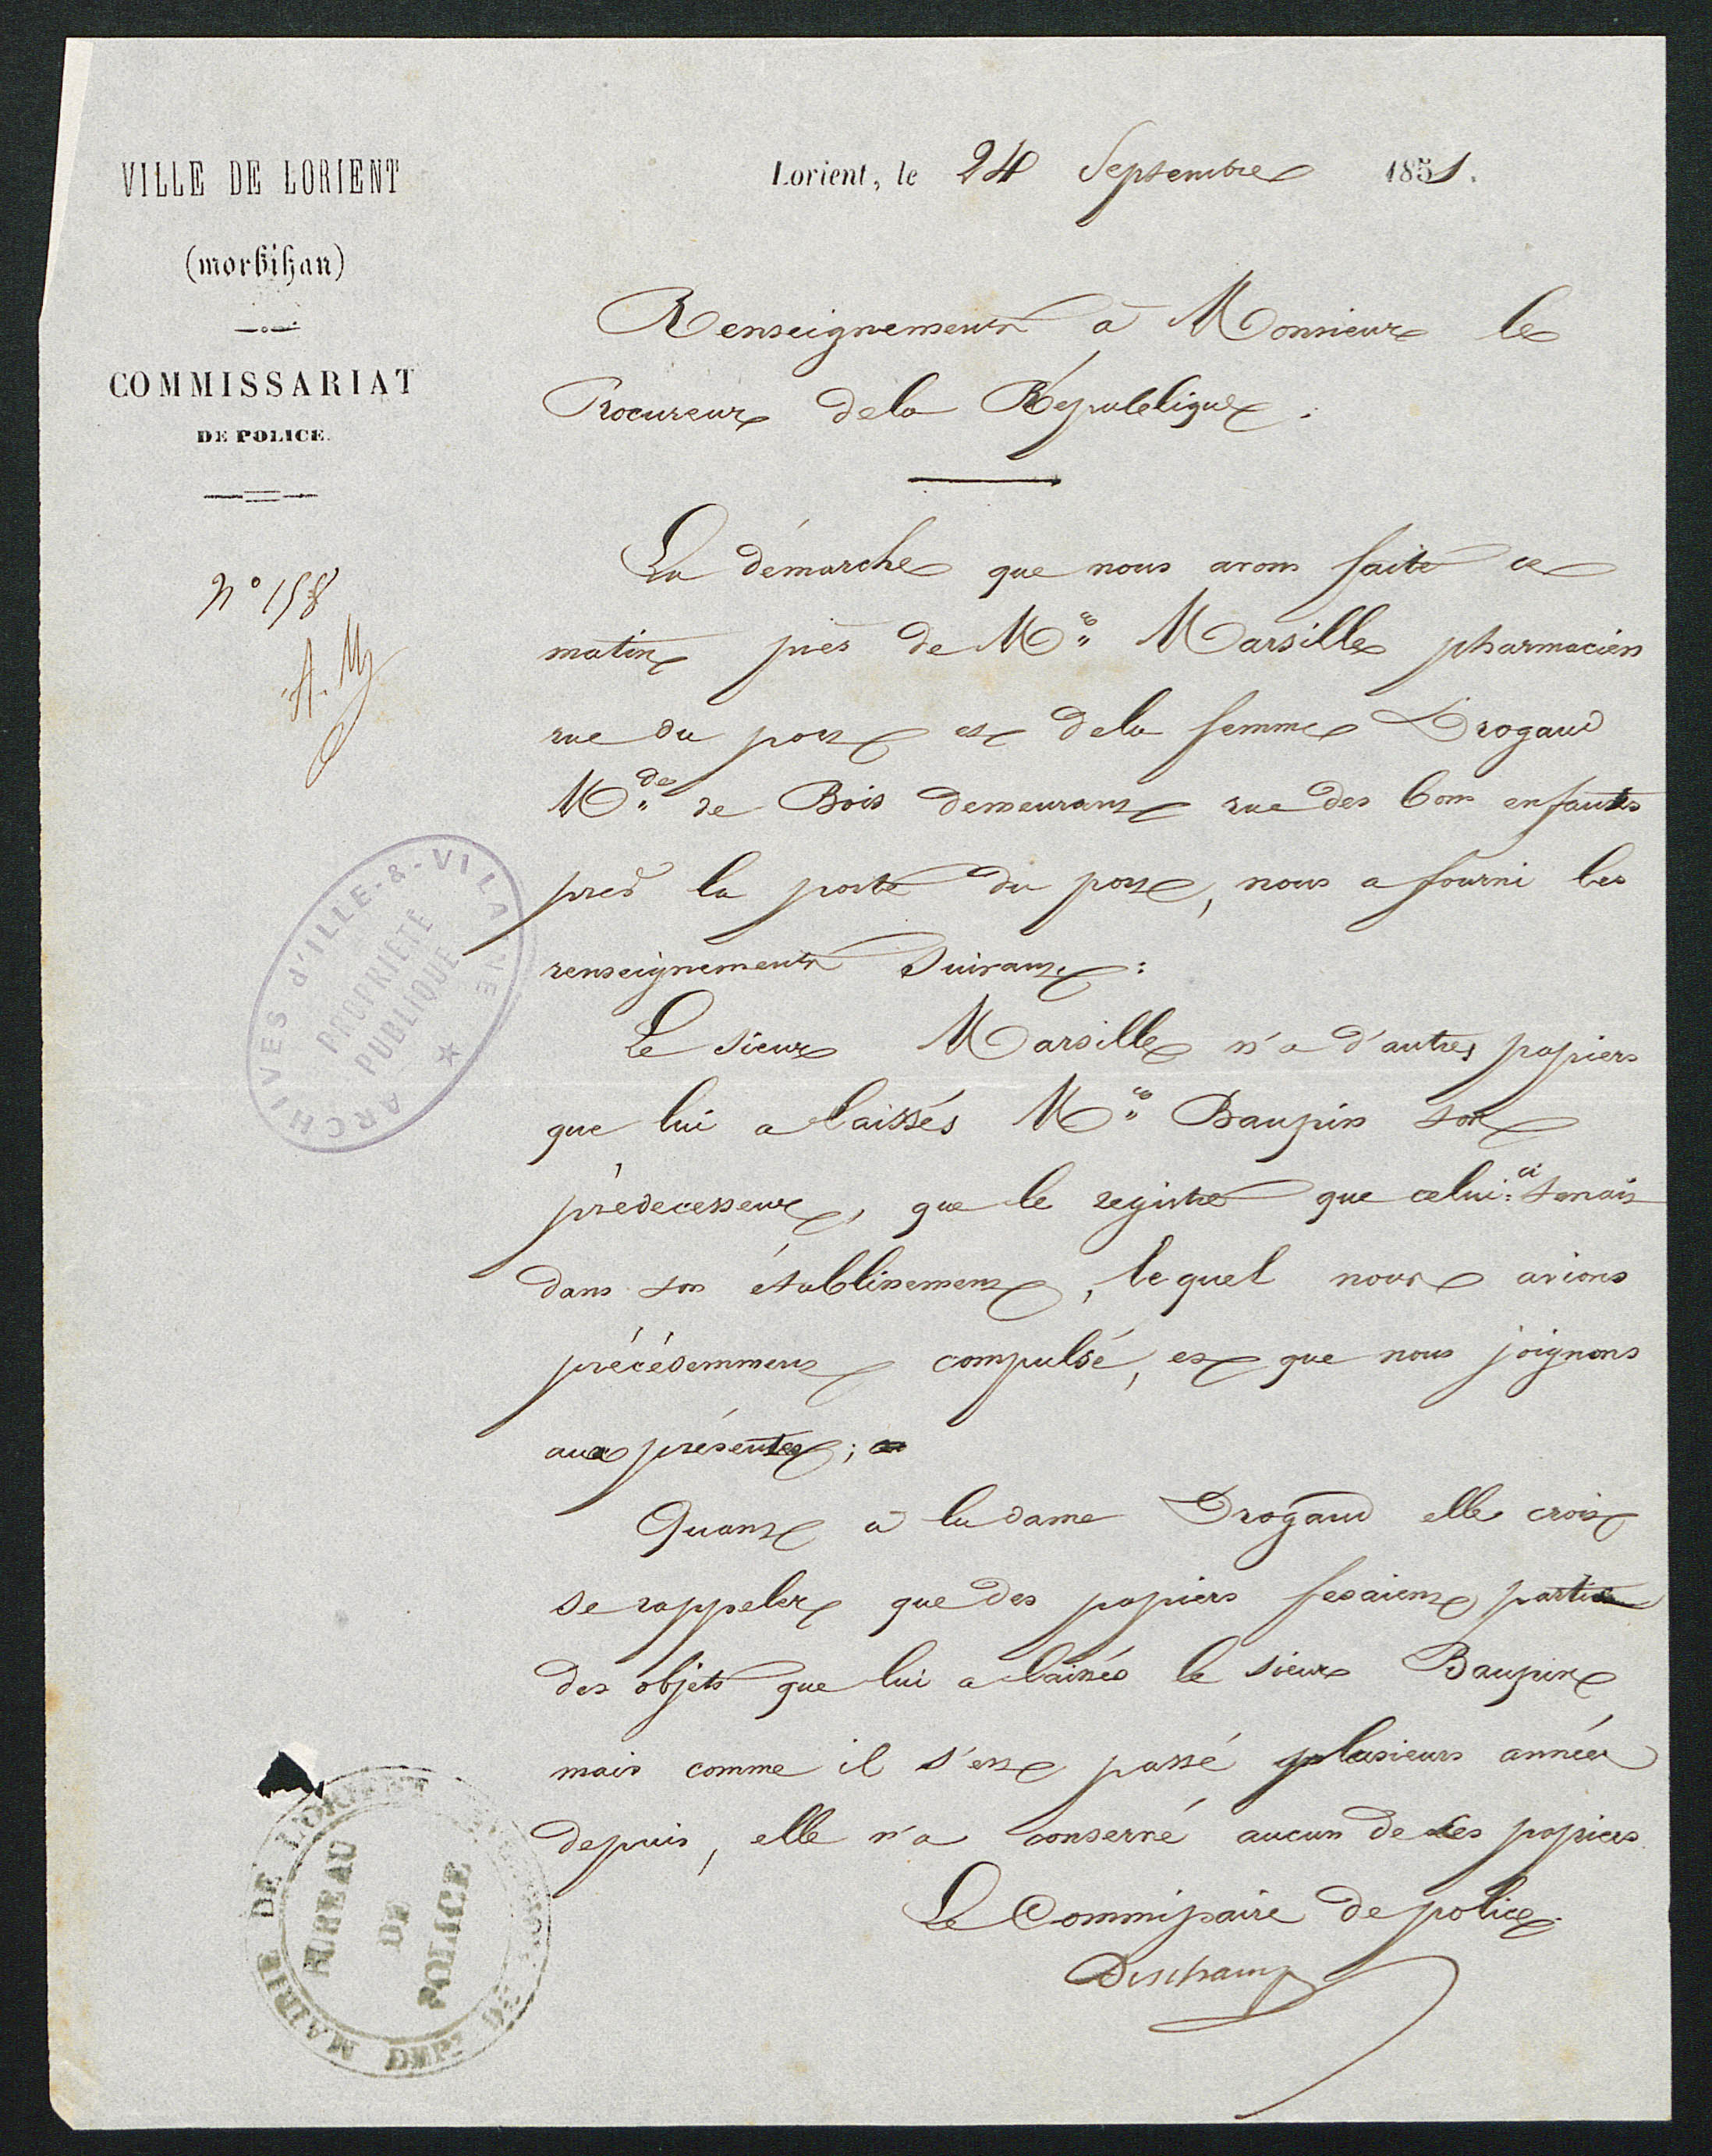 VILLE DE LORIENT
(morbihan)
COMMISSARIAT
DE POLICE.
N° 158
A. M
Lorient, le 24 Septembre 1851.
Renseignements à Monsieur le
Procureur dela République.
La démarche que nous avons faite ce
matin près de Mr. Marsille pharmacien
rue du port et dela femme Drogaud
Mde. de Bois demeurant rue des bons enfants
près la porte du port, nous a fourni les
renseignements suivants:
Le sieur Marsille n'a d'autres papiers
que lui a laissés Mr. Baupin son
prédécesseur, que le registre que celui-ci tenait
dans son établissement, lequel nous avions
précédemment compulsé, et que nous joignons
aux présentes;
Quant à la dame Drogaud elle croit
se rappeler que des papiers fesaient partie
des objets que lui a laissés le sieur Baupin
mais comme il s'est passé plusieurs années
depuis, elle n'a conservé aucun de ces papiers
Le Commissaire de police
Deschamps
ARCHIVES d'ILLE-&-VILAINE
PROPRIÉTÉ
PUBLIQUE
MAIRIE DE LORIENT
DÉPT DU
BUREAU
DE
POLICE